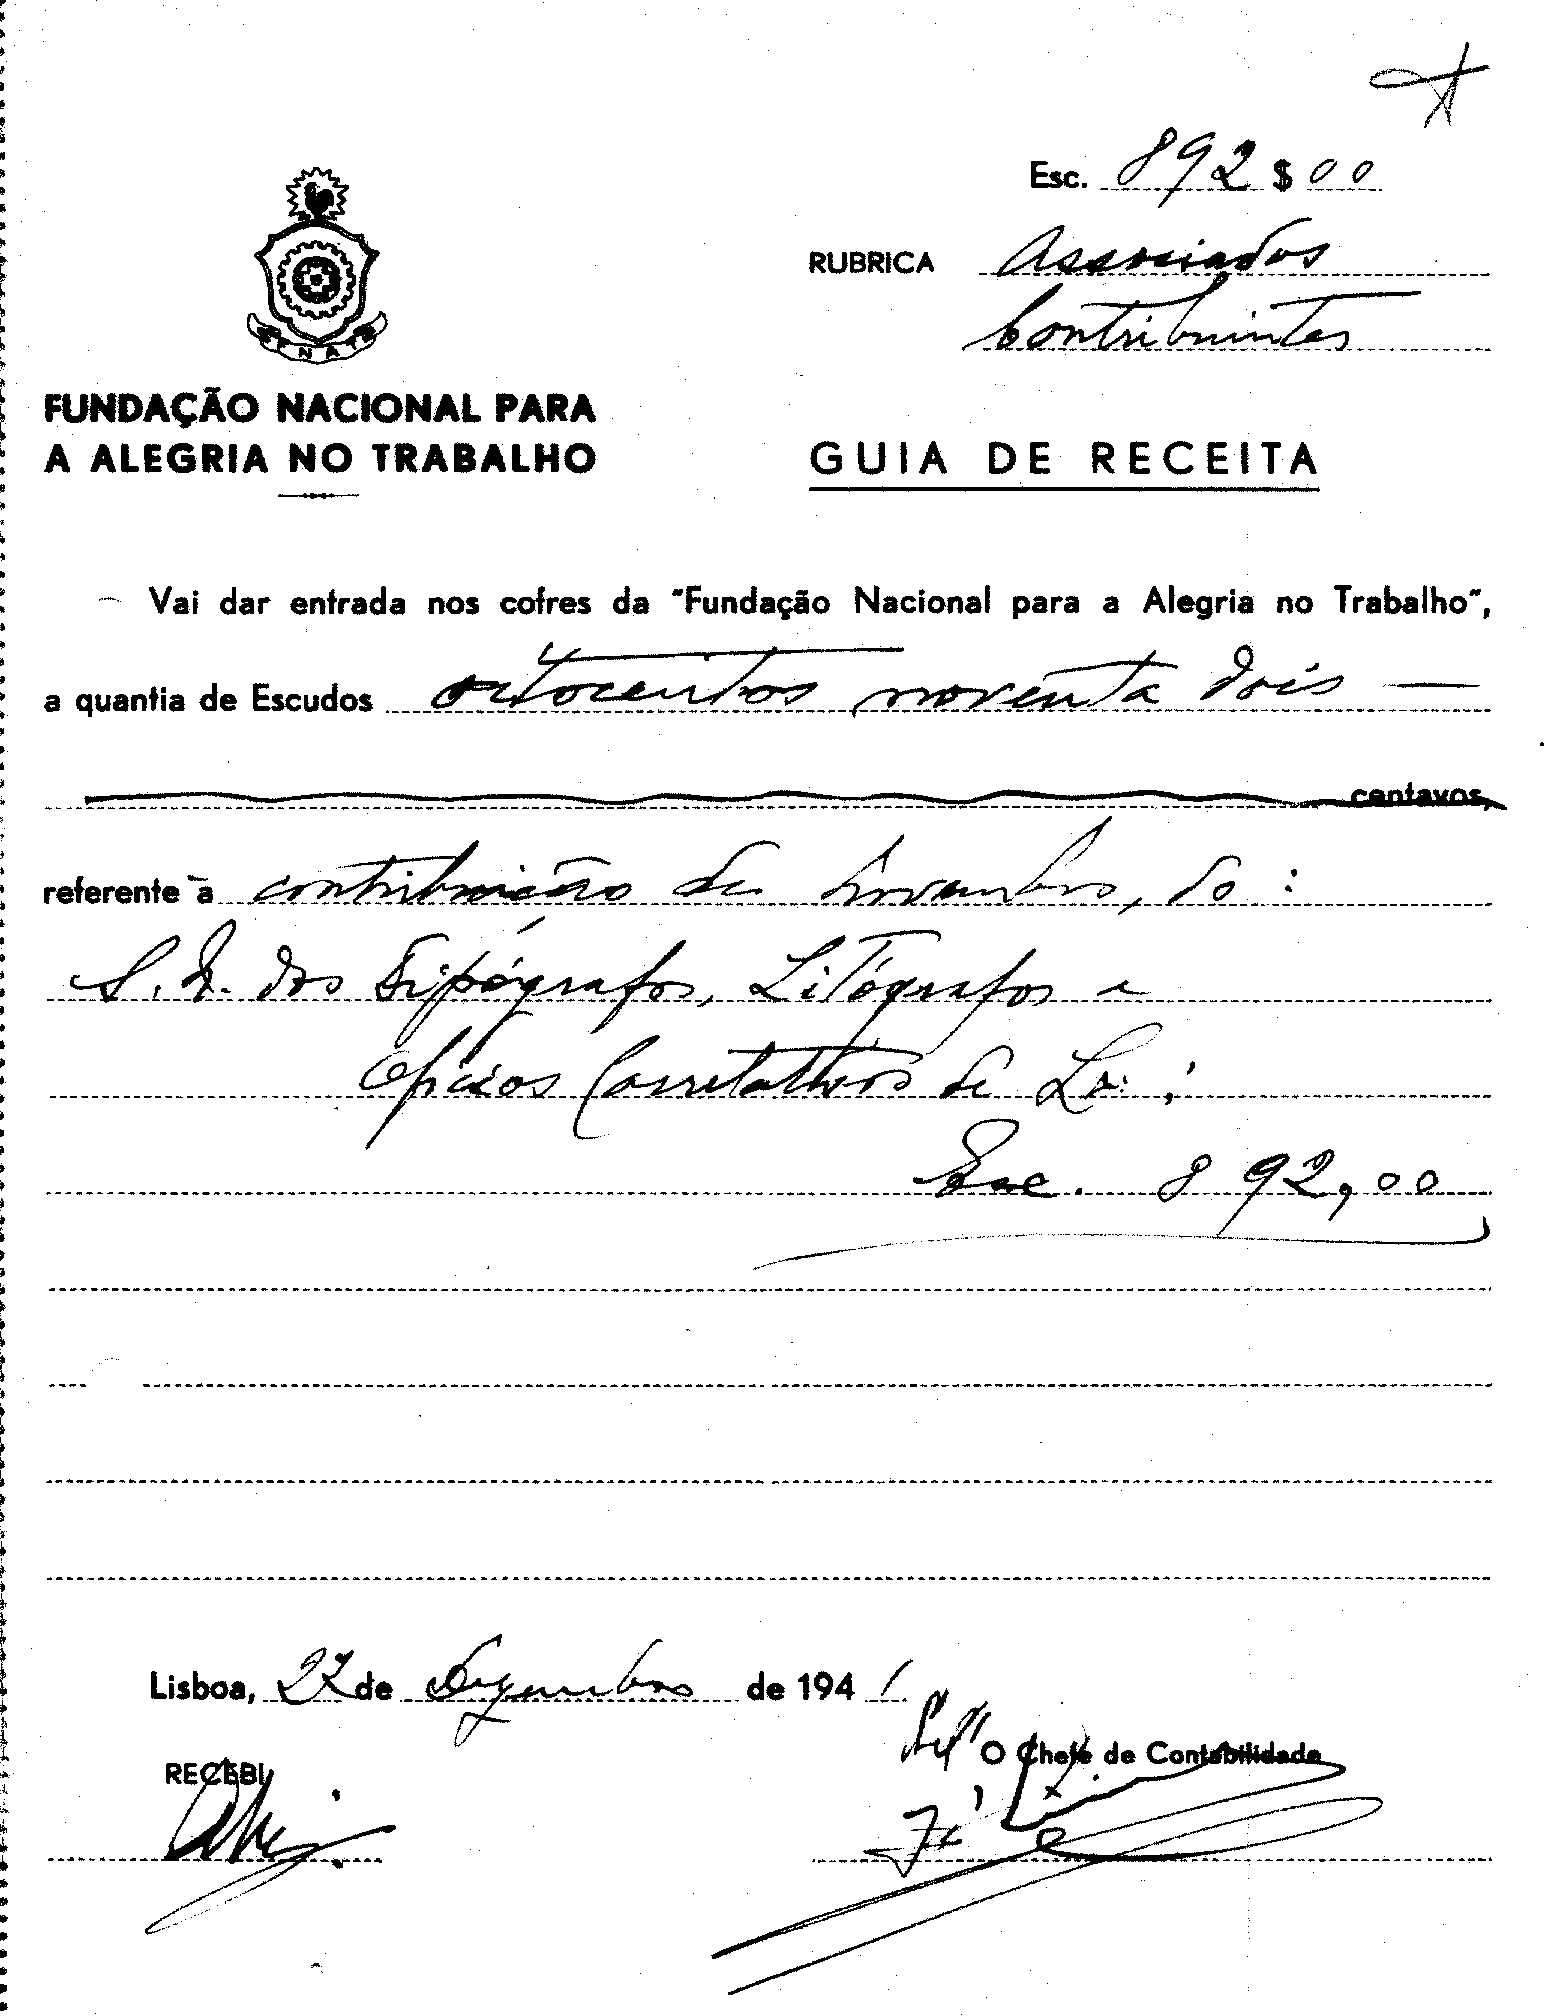 Esc. 892 $ 00
RUBRICA Associados
Contribuintes
FUNDAÇÃO NACIONAL PARA
A ALEGRIA NO TRABALHO
GUIA DE RECEITA
Vai dar entrada nos cofres da "Fundação Nacional para a Alegria no Trabalho",
a quantia de Escudos oitocentos noventa dois —
centavos,
referente à contribuição de Novembro, do :
S. N. dos Tipógrafos, Litógrafos e
Ofícios Correlativos de Lx. ;
Esc. 892,00
Lisboa, 27 de Dezembro de 194 1
O Chefe de Contabilidade
RECEBI